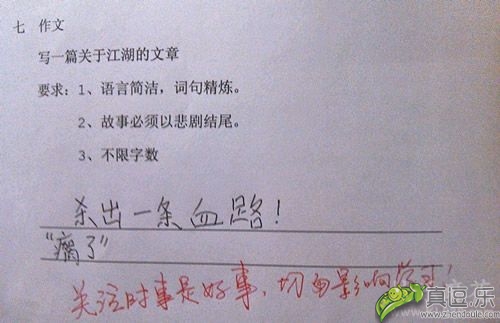 七 作文
写一篇关于江湖的文章
要求：1、语言简洁，词句精炼。
2、故事必须以悲剧结尾。
3、不限字数
杀出一条血路！
“瘸了”
关注时事是好事，切勿影响学习！
真逗乐
www.zhendoule.com